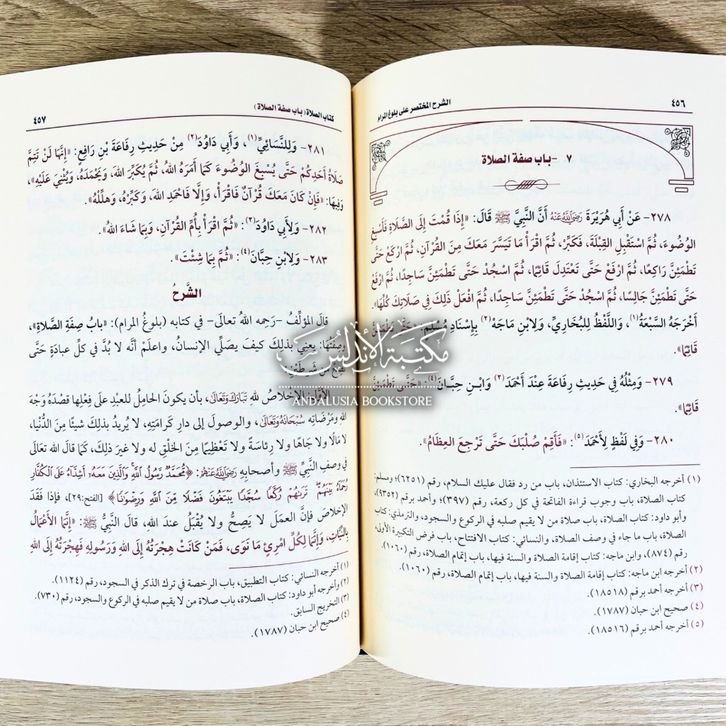 ٤٥٦
الشرح المختصر على بلوغ المرام
٧ - باب صفة الصلاة
٢٧٨- عَنْ أَبِي هُرَيْرَةَ رَضِيَ اللَّهُ عَنْهُ أَنَّ النَّبِيَّ ﷺ قَالَ: «إِذَا قُمْتَ إِلَى الصَّلَاةِ فَأَسْبِغِ
الْوُضُوءَ، ثُمَّ اسْتَقْبِلِ الْقِبْلَةَ، فَكَبِّرْ، ثُمَّ اقْرَأْ مَا تَيَسَّرَ مَعَكَ مِنَ الْقُرْآنِ، ثُمَّ ارْكَعْ حَتَّى
تَطْمَئِنَّ رَاكِعًا، ثُمَّ ارْفَعْ حَتَّى تَعْتَدِلَ قَائِمًا، ثُمَّ اسْجُدْ حَتَّى تَطْمَئِنَّ سَاجِدًا، ثُمَّ ارْفَعْ حَتَّى
تَطْمَئِنَّ جَالِسًا، ثُمَّ اسْجُدْ حَتَّى تَطْمَئِنَّ سَاجِدًا، ثُمَّ افْعَلْ ذَلِكَ فِي صَلَاتِكَ كُلِّهَا».
أَخْرَجَهُ السَّبْعَةُ(١)، وَاللَّفْظُ لِلْبُخَارِيِّ، وَلِابْنِ مَاجَهْ(٢) بِإِسْنَادِ مُسْلِمٍ: «حَتَّى تَطْمَئِنَّ
قَائِمًا».
٢٧٩- وَمِثْلُهُ فِي حَدِيثِ رِفَاعَةَ عِنْدَ أَحْمَدَ(٣) وَابْنِ حِبَّانَ(٤): «حَتَّى تَطْمَئِنَّ
قَائِمًا».
٢٨٠- وَفِي لَفْظٍ لِأَحْمَدَ(٥): «فَأَقِمْ صُلْبَكَ حَتَّى تَرْجِعَ الْعِظَامُ».
(١) أخرجه البخاري: كتاب الاستئذان، باب من رد فقال عليك السلام، رقم (٦٢٥١)؛ ومسلم:
كتاب الصلاة، باب وجوب قراءة الفاتحة في كل ركعة، رقم (٣٩٧)؛ وأحمد برقم (٩٣٥٢)،
وأبو داود: كتاب الصلاة، باب صلاة من لا يقيم صلبه في الركوع والسجود، والترمذي: كتاب
الصلاة، باب ما جاء في وصف الصلاة، والنسائي: كتاب الافتتاح، باب فرض التكبيرة الأولى،
رقم (٨٧٤)، وابن ماجه: كتاب إقامة الصلاة والسنة فيها، باب إتمام الصلاة، رقم (١٠٦٠).
(٢) أخرجه ابن ماجه: كتاب إقامة الصلاة والسنة فيها، باب إتمام الصلاة، رقم (١٠٦٠).
(٣) أخرجه أحمد برقم (١٨٥١٨).
(٤) صحيح ابن حبان (١٧٨٧).
(٥) أخرجه أحمد برقم (١٨٥١٦).
كتاب الصلاة (باب صفة الصلاة)
٤٥٧
٢٨١- وَلِلنَّسَائِيِّ(١)، وَأَبِي دَاوُدَ(٢) مِنْ حَدِيثِ رِفَاعَةَ بْنِ رَافِعٍ: «إِنَّهَا لَنْ تَتِمَّ
صَلَاةُ أَحَدِكُمْ حَتَّى يُسْبِغَ الْوُضُوءَ كَمَا أَمَرَهُ اللهُ، ثُمَّ يُكَبِّرَ اللهَ، وَيَحْمَدَهُ، وَيُثْنِيَ عَلَيْهِ»،
وَفِيهَا: «فَإِنْ كَانَ مَعَكَ قُرْآنٌ فَاقْرَأْ، وَإِلَّا فَاحْمَدِ اللهَ، وَكَبِّرْهُ، وَهَلِّلْهُ».
٢٨٢- وَلِأَبِي دَاوُدَ(٣): «ثُمَّ اقْرَأْ بِأُمِّ الْقُرْآنِ، وَبِمَا شَاءَ اللهُ».
٢٨٣- وَلِابْنِ حِبَّانَ(٤): «ثُمَّ بِمَا شِئْتَ».
الشَّرْحُ
قال المؤلِّفُ -رَحمه اللهُ تعالى- في كتابه (بلوغُ المرام): «بابُ صِفَةِ الصَّلاةِ»،
وصِفَتُها: يعني بذلك كيف يصلِّي الإنسانُ، واعلمْ أنَّه لا بُدَّ في كلِّ عبادةٍ حَتَّى
الإخلاصُ للهِ تَبَارَكَ وَتَعَالَى، بأن يكونَ الحامِلُ للعبدِ على فِعْلِها قصْدَهُ وَجْهَ
اللهِ ومَرْضَاتِهِ سُبْحَانَهُ وَتَعَالَى، والوصولَ إلى دارِ كرامتِهِ، لا يُريدُ بذلك شيئًا مِنَ الدُّنْيا،
لا مالًا ولا جَاهًا ولا رِئاسةً ولا تَعْظيمًا مِنَ الخَلْقِ له ولا غيرَ ذلك، كما قال اللهُ تعالى
في وصفِ النَّبيِّ ﷺ وأصحابِهِ رَضِيَ اللَّهُ عَنْهُمْ: ﴿مُّحَمَّدٌ رَّسُولُ اللَّهِ وَالَّذِينَ مَعَهُ أَشِدَّاءُ عَلَى الْكُفَّارِ
رُحَمَاءُ بَيْنَهُمْ تَرَاهُمْ رُكَّعًا سُجَّدًا يَبْتَغُونَ فَضْلًا مِّنَ اللَّهِ وَرِضْوَانًا﴾ [الفتح:٢٩]، فإذا فُقدَ
الإخلاصُ فإنَّ العملَ لا يَصِحُّ ولا يُقْبَلُ عندَ اللهِ، قال النَّبيُّ ﷺ: «إِنَّمَا الْأَعْمَالُ
بِالنِّيَّاتِ، وَإِنَّمَا لِكُلِّ امْرِئٍ مَا نَوَى، فَمَنْ كَانَتْ هِجْرَتُهُ إِلَى اللهِ وَرَسُولِهِ فَهِجْرَتُهُ إِلَى اللهِ
(١) أخرجه النسائي: كتاب التطبيق، باب الرخصة في ترك الذكر في السجود، رقم (١١٢٤).
(٢) أخرجه أبو داود: كتاب الصلاة، باب صلاة من لا يقيم صلبه في الركوع والسجود، رقم (٧٣٠).
(٣) التخريج السابق.
(٤) صحيح ابن حبان (١٧٨٧).
مكتبة الأندلس
ANDALUSIA BOOKSTORE